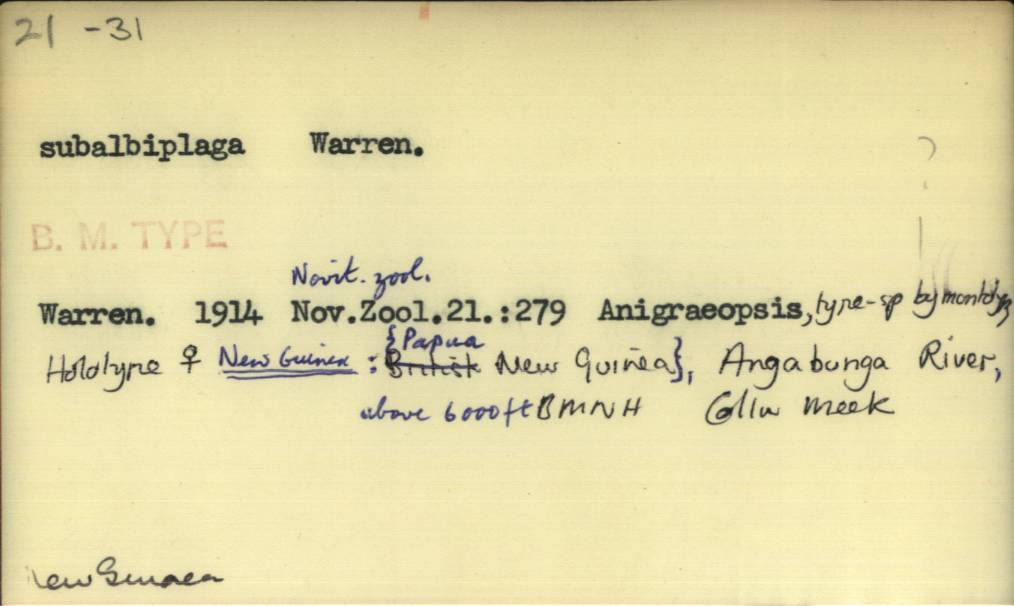 21 -31
subalbiplaga Warren.
?
B. M. TYPE
Novit. zool.
Warren. 1914 Nov.Zool.21.:279 Anigraeopsis, type-sp by monotypy
Holotype ♀ New Guinea : {Papua British New Guinea}, Angabunga River,
above 6000ft BMNH Meek
New Guinea